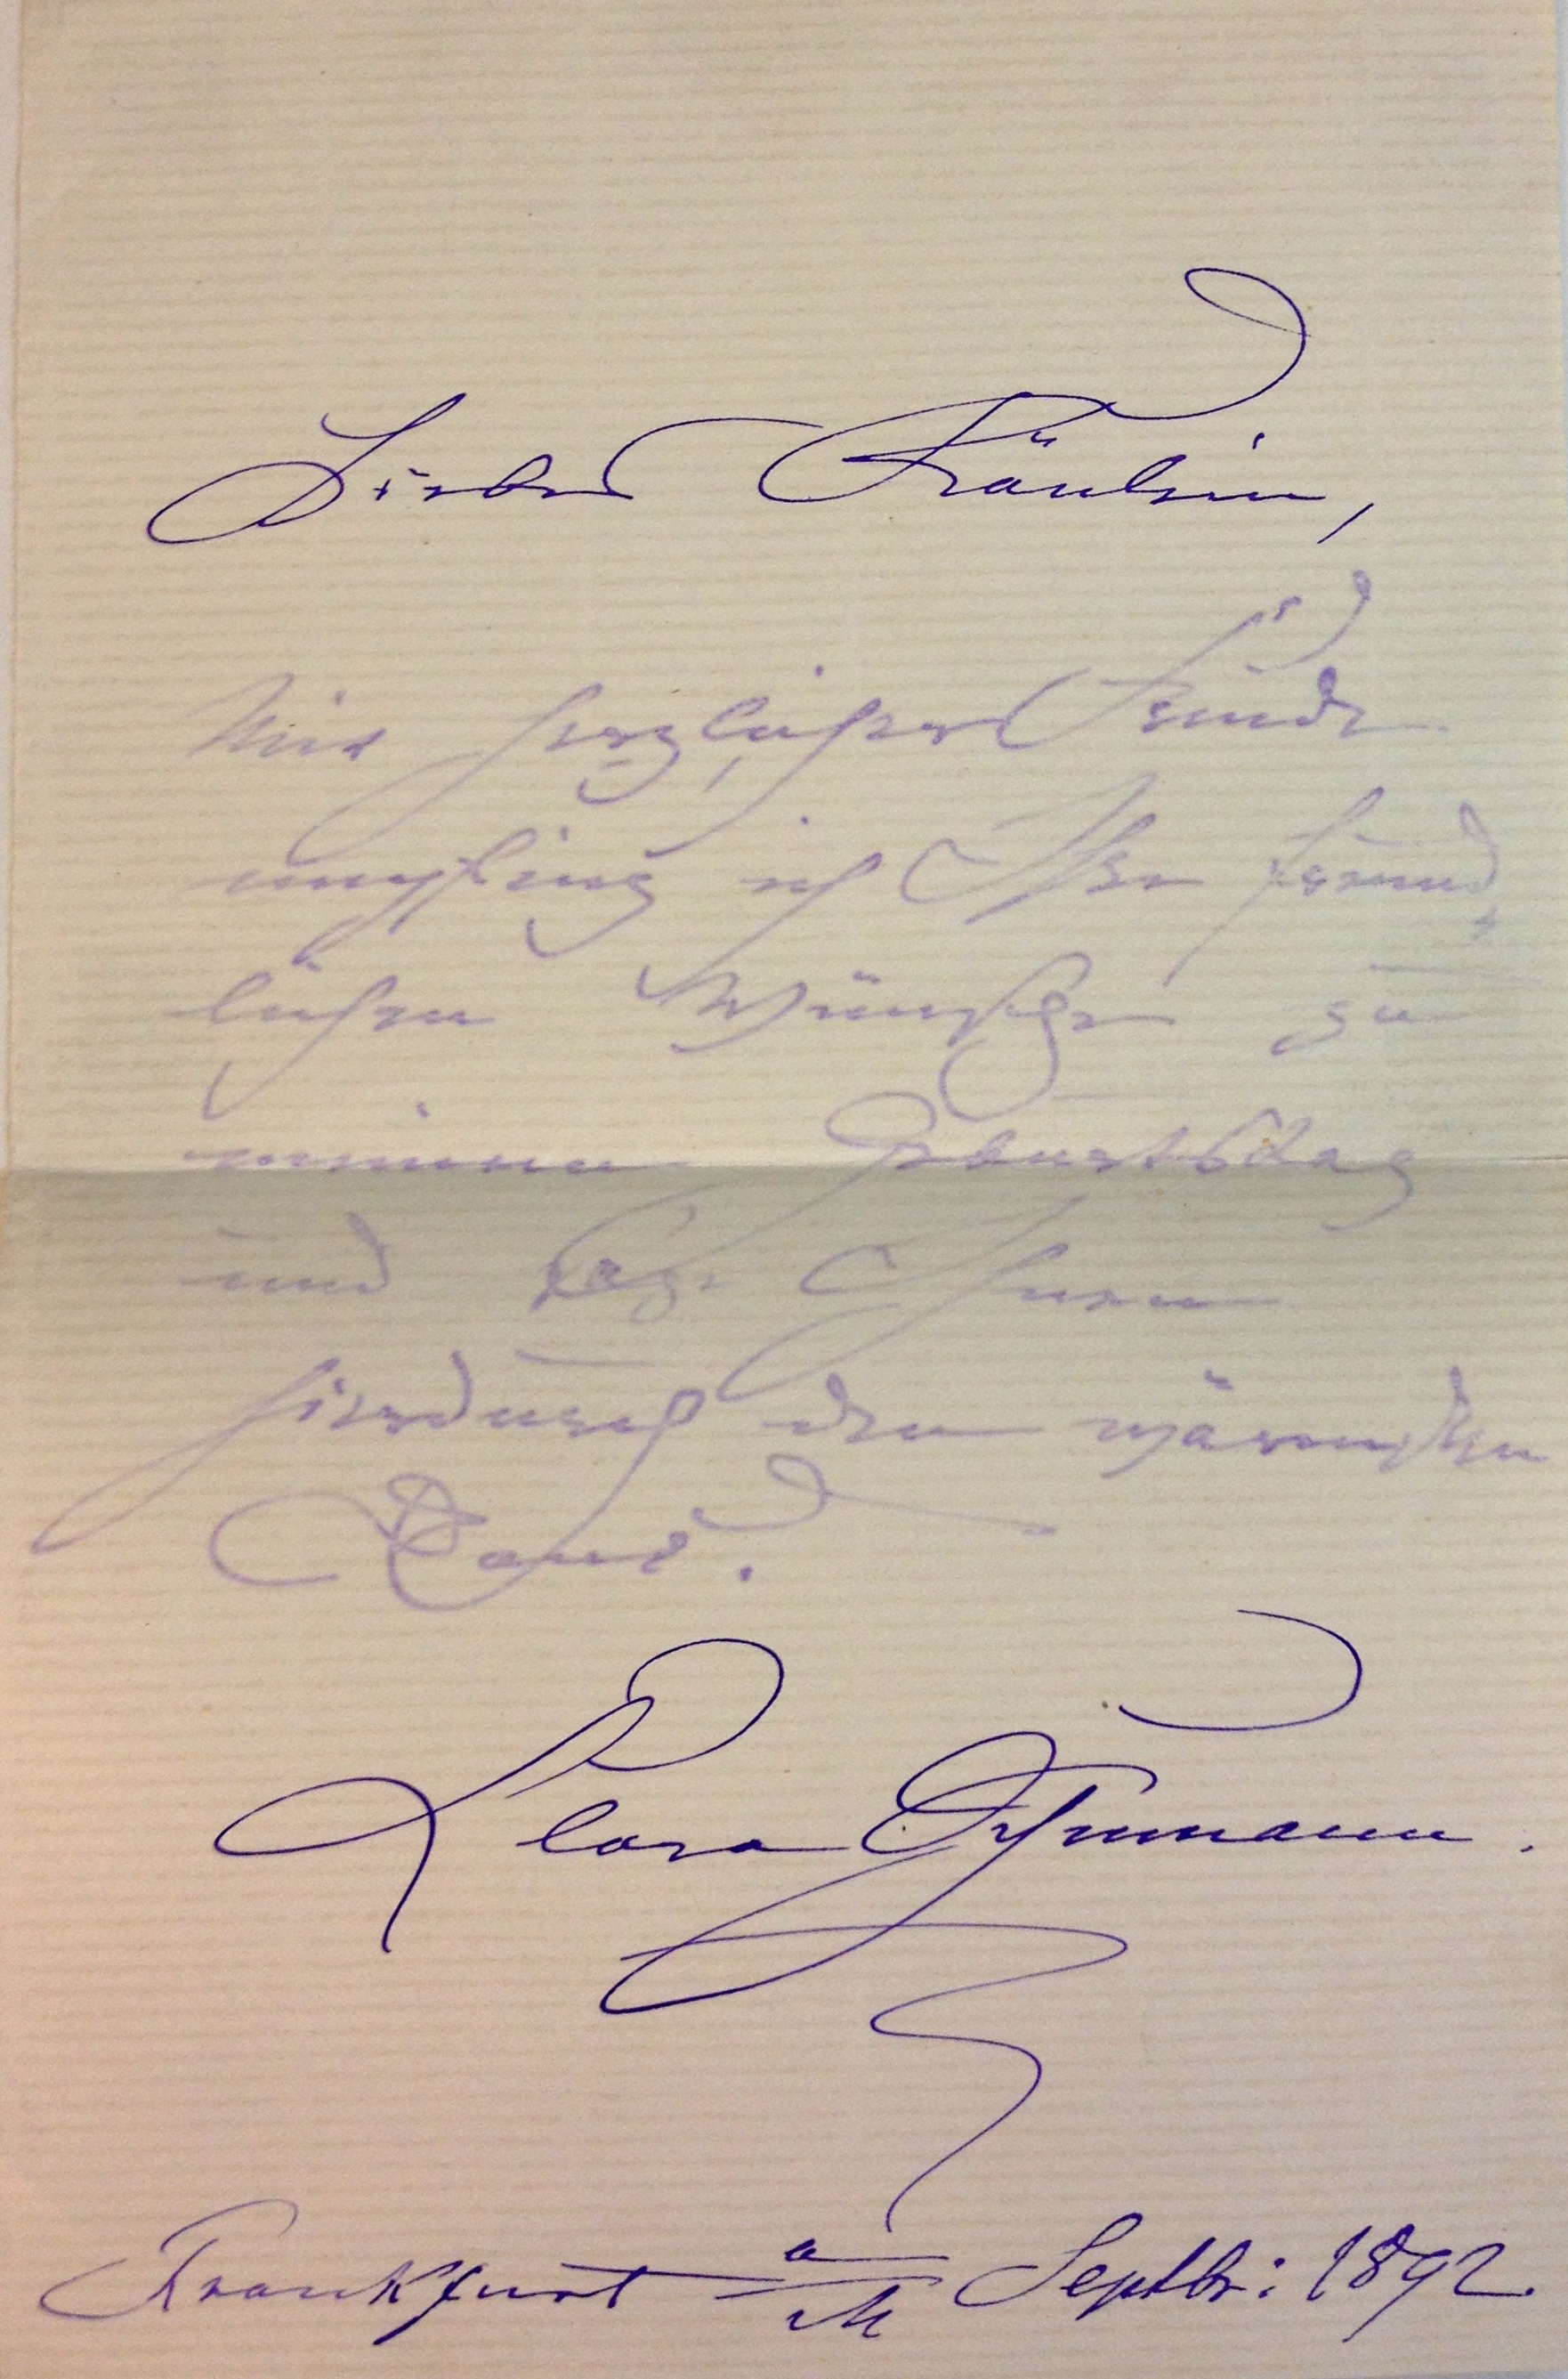 Liebes Fräulein,
Mit herzlicher Freude
empfing ich Ihre freund-
lichen Wünsche zu
meinem Geburtstag
und sage Ihnen
hierdurch den wärmsten
Dank.
Clara Schumann.
Frankfurt a/M Septbr: 1892.